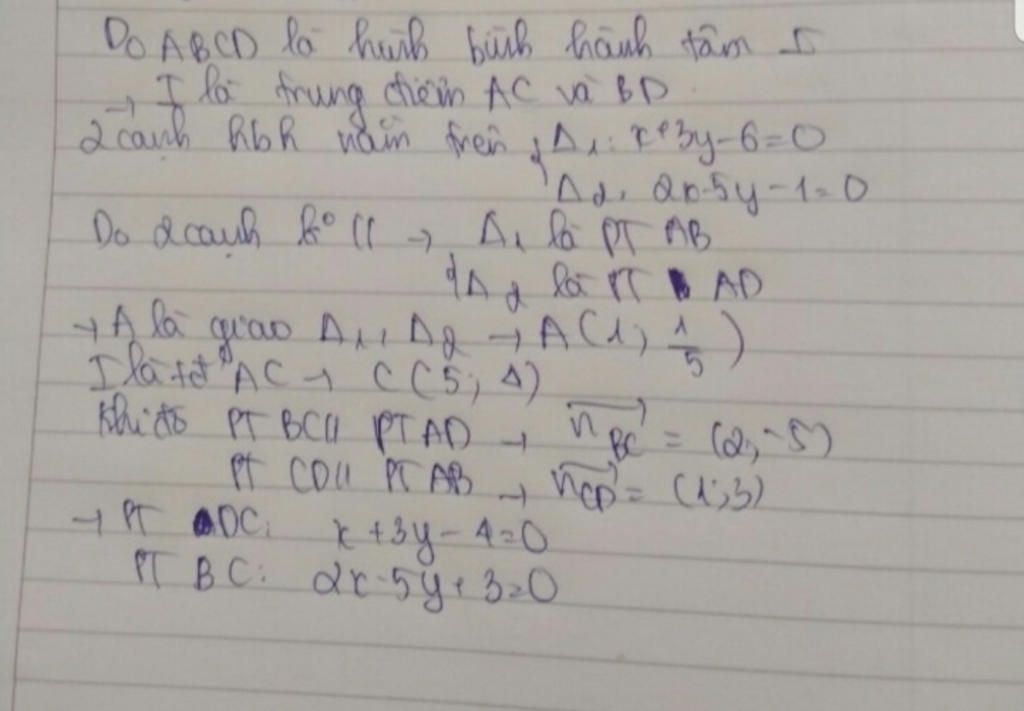 Do ABCD là hình bình hành tâm I
→ I là trung điểm AC và BD
2 cạnh hbh nằm trên { Δ₁: x+3y-6=0
Δ₂: 2x-5y-1=0
Do 2 cạnh ko // → Δ₁ là PT AB
{ Δ₂ là PT AD
→ A là giao Δ₁, Δ₂ → A(1; 1/5)
I là tđ AC → C(5; 1)
Khi đó PT BC // PT AD → n⃗BC = (2;-5)
PT CD // PT AB → n⃗CD = (1;3)
→ PT DC: x+3y-4=0
PT BC: 2x-5y+3=0